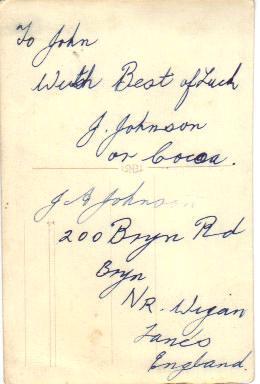 To John
With Best of Luck
J. Johnson
or Cocoa.
J A Johnson
200 Bryn Rd
Bryn
NR. Wigan
Lancs
England.